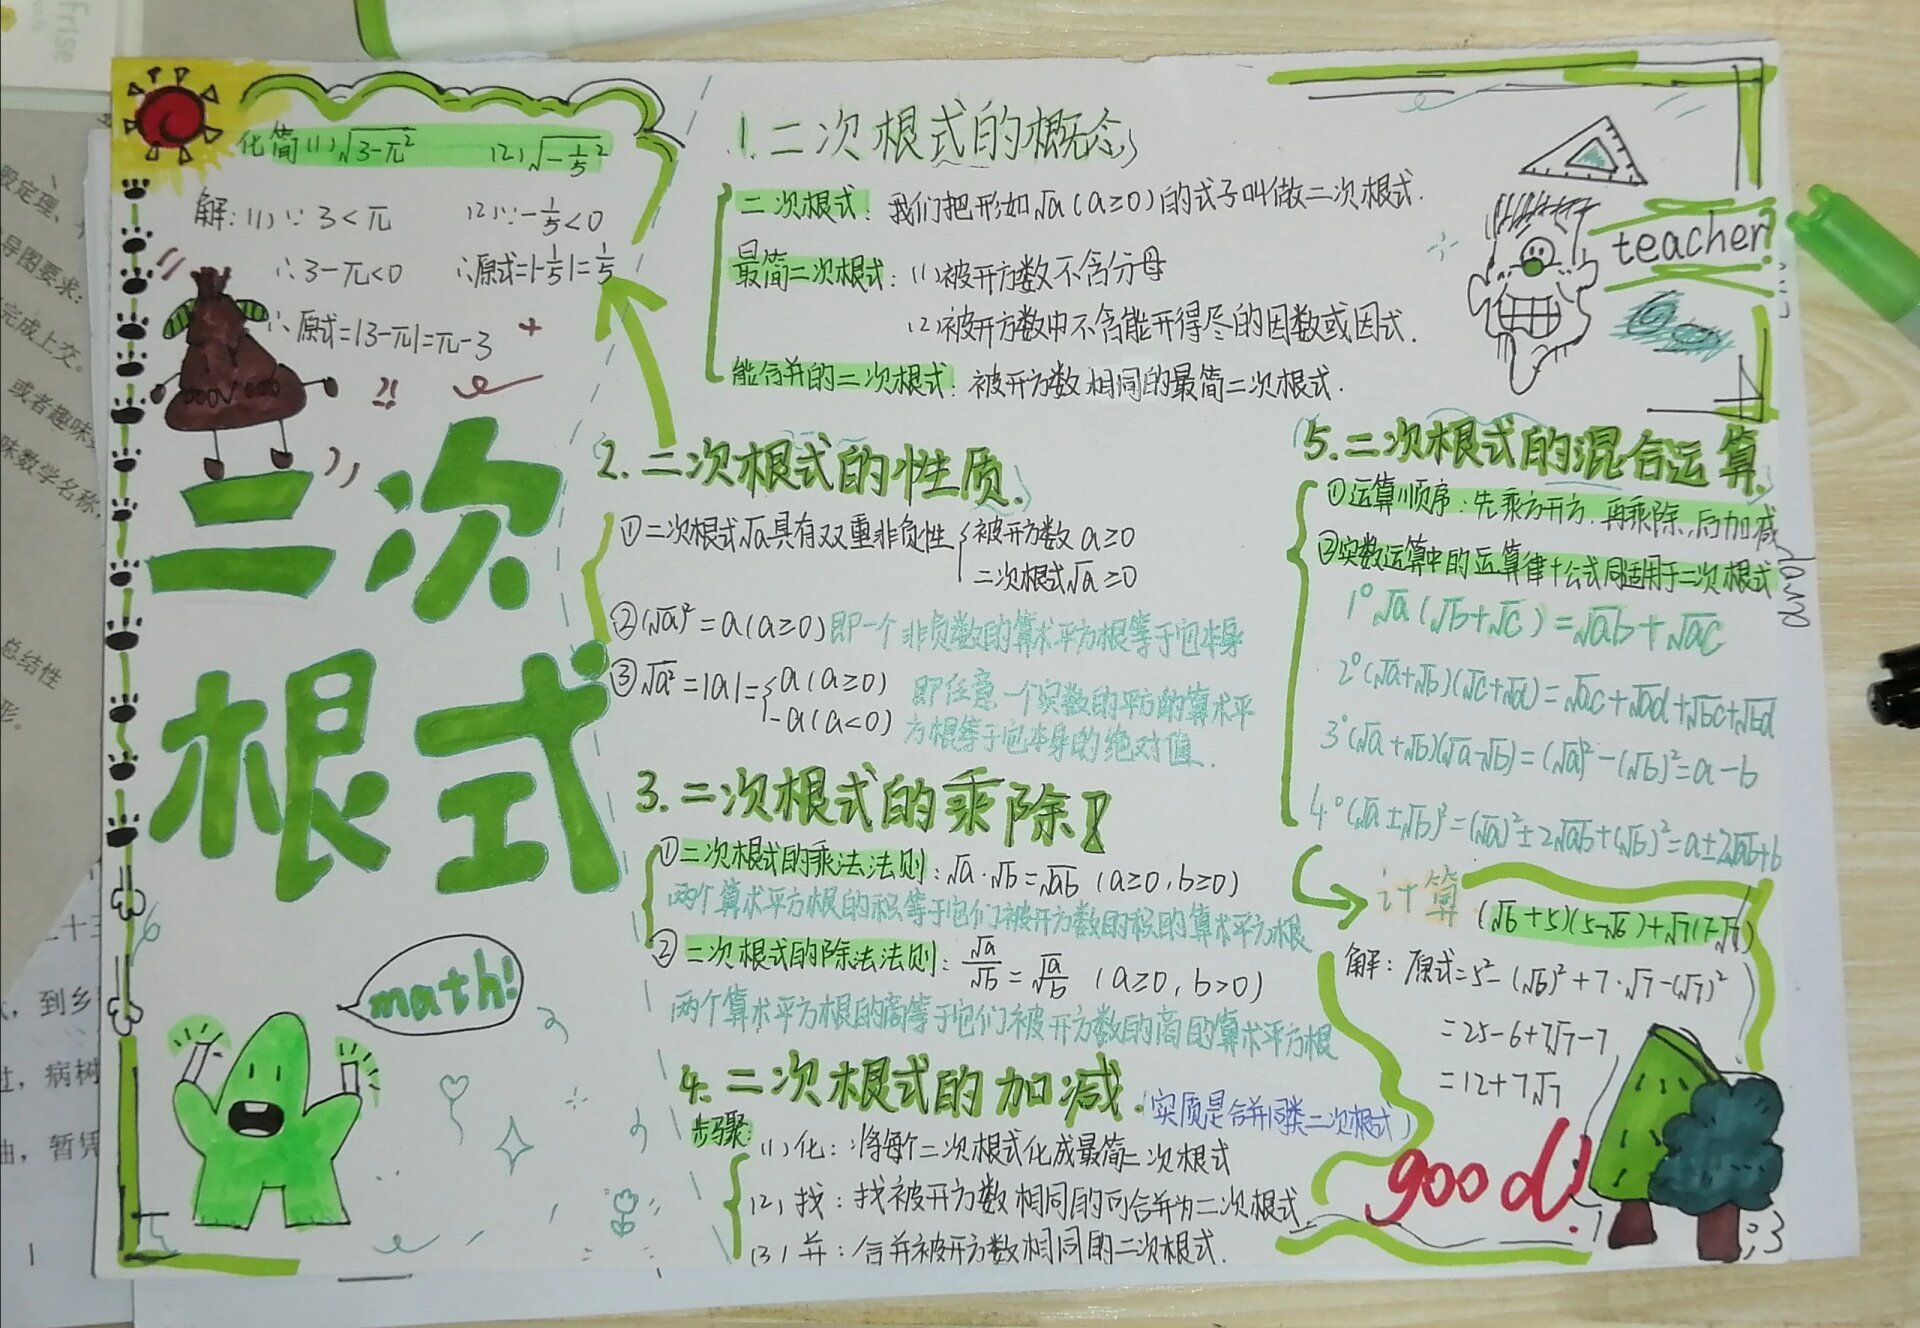 化简(1)√3-π² (2)√-1/5²
解:(1)∵3<π (2)∵-1/5<0
∴3-π<0 ∴原式=|-1/5|=1/5
∴原式=|3-π|=π-3
二次
根式
math!
1.二次根式的概念
二次根式:我们把形如√a(a≥0)的式子叫做二次根式.
最简二次根式:(1)被开方数不含分母
(2)被开方数中不含能开得尽的因数或因式.
能合并的二次根式:被开方数相同的最简二次根式.
teacher
2.二次根式的性质.
①二次根式√a具有双重非负性{被开方数a≥0
二次根式√a≥0
②(√a)²=a(a≥0)即一个非负数的算术平方根等于它本身
③√a²=|a|={a(a≥0)
-a(a<0)
即任意一个实数的平方的算术平
方根等于它本身的绝对值.
3.二次根式的乘除
①二次根式的乘法法则:√a·√b=√ab (a≥0,b≥0)
两个算术平方根的积等于它们被开方数的积的算术平方根
②二次根式的除法法则:√a/√b=√a/b (a≥0,b>0)
两个算术平方根的商等于它们被开方数的商的算术平方根
4.二次根式的加减.(实质是合并同类二次根式)
步骤:
(1)化:将每个二次根式化成最简二次根式
(2)找:找被开方数相同的可合并为二次根式
(3)并:合并被开方数相同的二次根式.
5.二次根式的混合运算.
①运算顺序:先乘方开方,再乘除,后加减
②实数运算中的运算律+公式同适用于二次根式
1°√a(√b+√c)=√ab+√ac
2°(√a+√b)(√c+√d)=√ac+√ad+√bc+√bd
3°(√a+√b)(√a-√b)=(√a)²-(√b)²=a-b
4°(√a±√b)²=(√a)²±2√ab+(√b)²=a±2√ab+b
计算 (√6+5)(5-√6)+√7(7-√7)
解:原式=5²-(√6)²+7·√7-(√7)²
=25-6+7√7-7
=12+7√7
good!
;3
导图要求:
完成上交。
或者趣味
味数学名称,
总结性
形。
,到乡
,病树
,暂凭